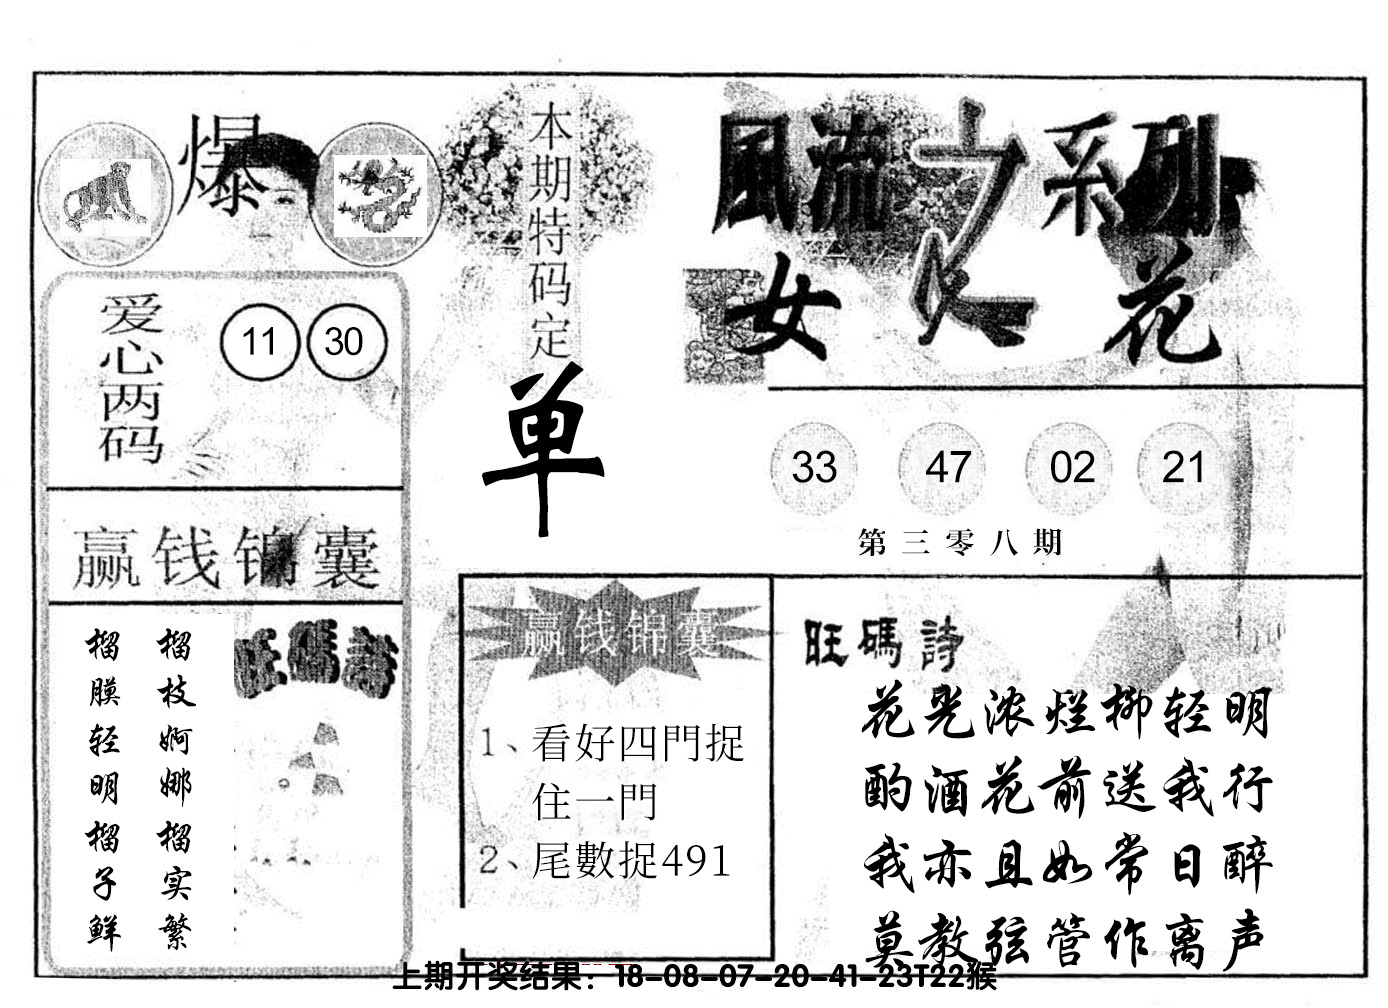 爆
本期特码定
单
風流之系列
女人花
爱心两码
11 30
33 47 02 21
第三零八期
赢钱锦囊
榴枝婀娜榴实繁
榴膜轻明榴子鲜
旺碼詩
赢钱锦囊
1、看好四門捉
住一門
2、尾數捉491
旺碼詩
花光浓烂柳轻明
酌酒花前送我行
我亦且如常日醉
莫教弦管作离声
上期开奖结果：18-08-07-20-41-23T22猴